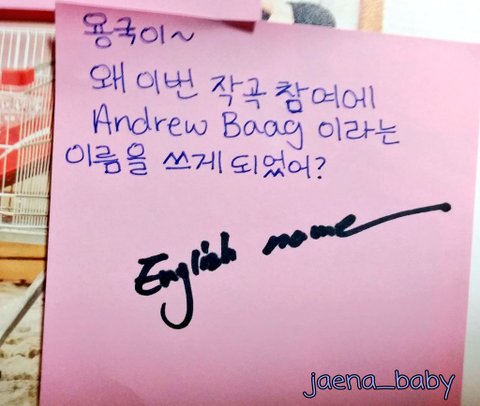 용국이~
왜 이번 작곡 참여에
Andrew Baag 이라는
이름을 쓰게 되었어?
English name
jaena_baby